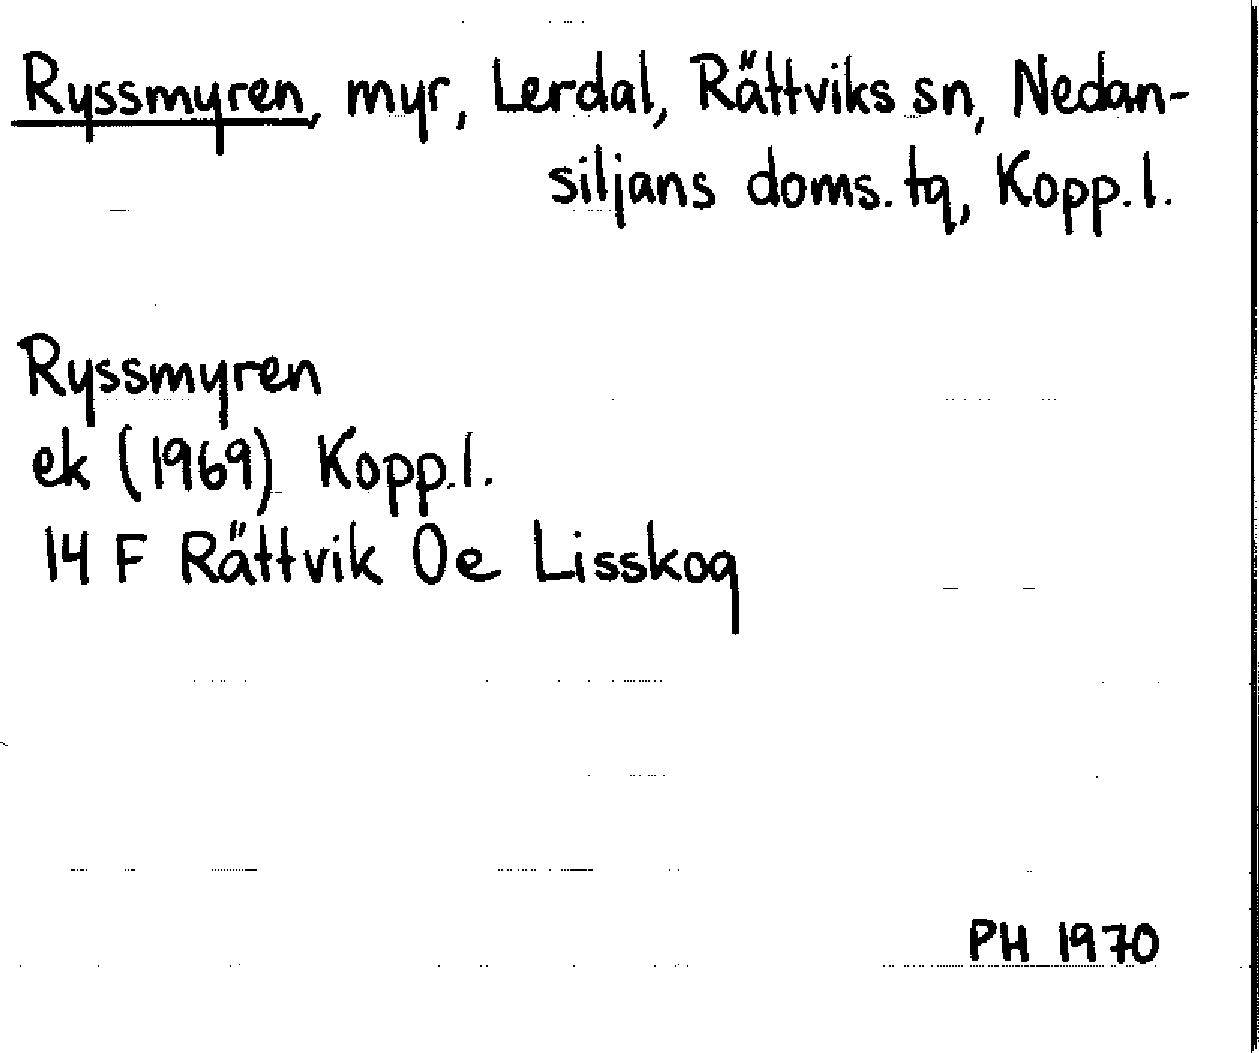 Ryssmyren, myr, Lerdal, Rättviks sn, Nedan-
siljans doms. tg, Kopp. l.
Ryssmyren
ek (1969) Kopp. l.
14 F Rättvik 0e Lisskog
PH 1970